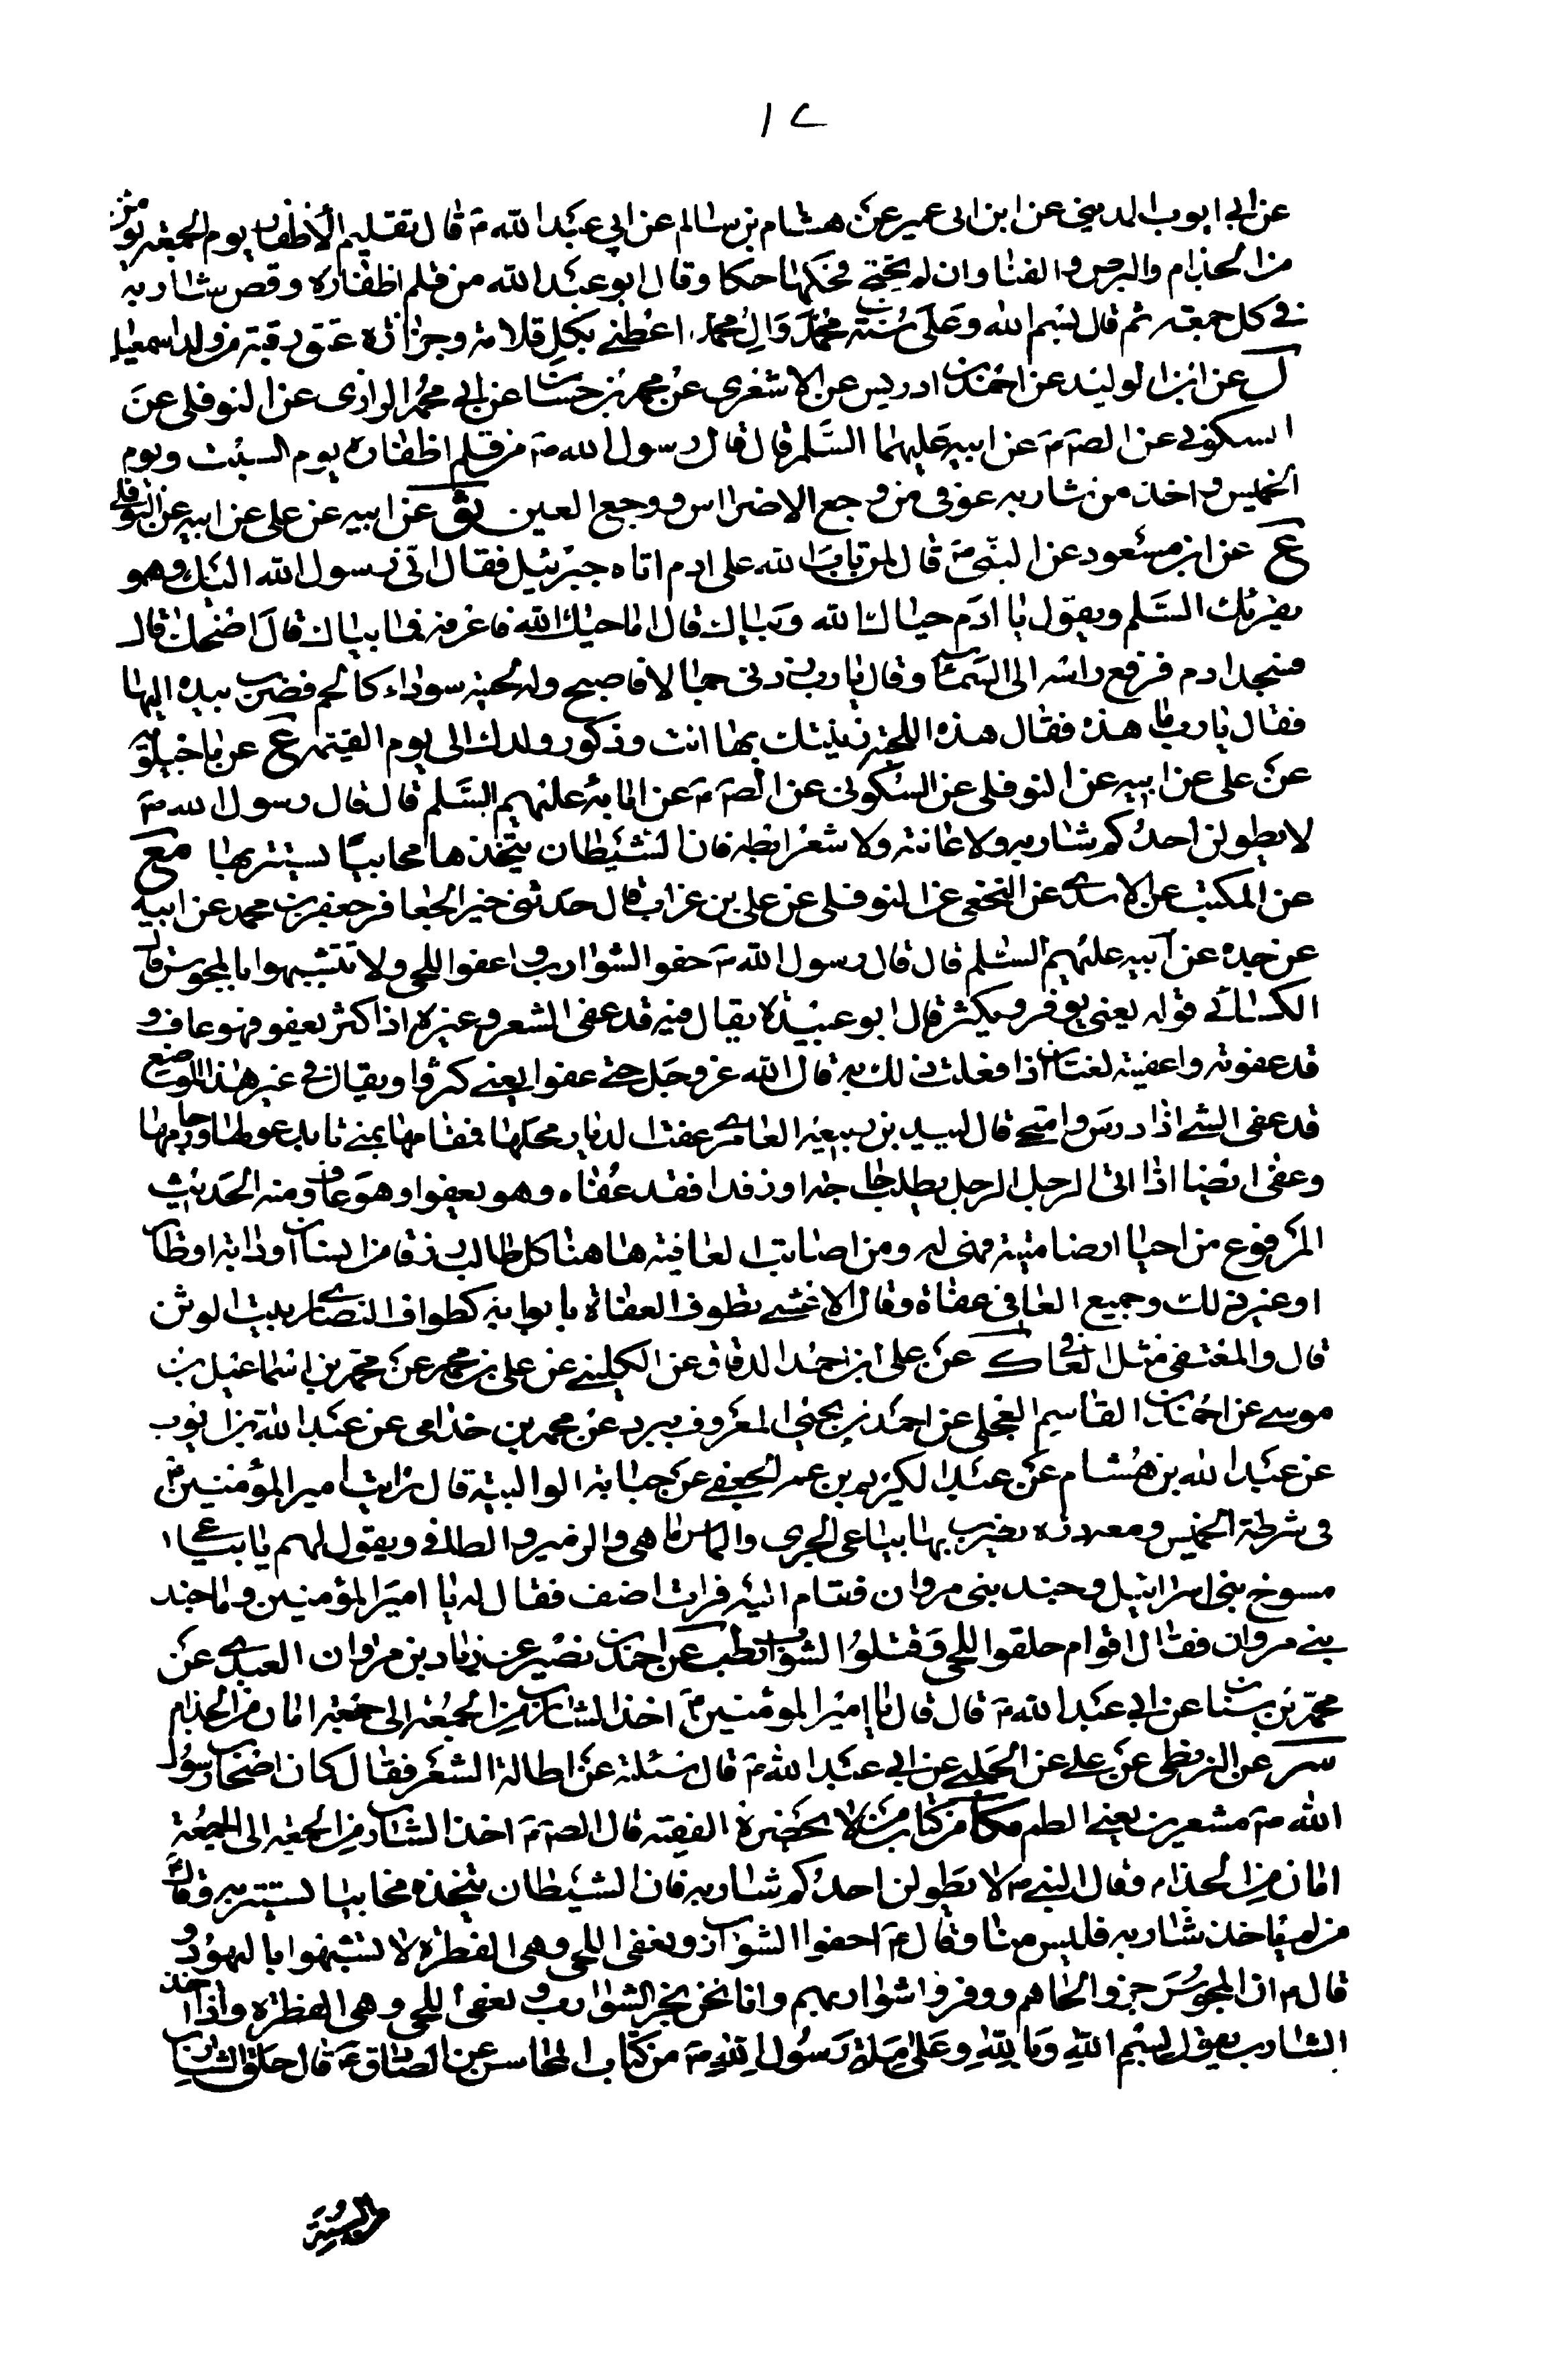 ١٧
عن ابي ايوب المديني عن ابن ابي عمير عن هشام بن سالم عن ابي عبد الله ع قال تقليم الأظفار يوم الجمعة يؤمن
من الجذام والبرص والعما وان لم تحتج فحكها حكا وقال ابو عبد الله من قلم اظفاره وقص شاربه
في كل جمعة ثم قال بسم الله وعلى سنة محمد وال محمد اعطي بكل قلامة وجزازة عتق رقبة من ولد اسمعيل
ل عن ابن الوليد عن احمد بن ادريس عن الاشعري عن محمد بن حسان عن ابي محمد الرازي عن النوفلي عن
السكوني عن الص ع عن ابيه عليهما السلم قال قال رسول الله ص من قلم اظفاره يوم السبت ويوم
الخميس واخذ من شاربه عوفي من وجع الاضراس ووجع العين ثو عن ابيه عن علي عن ابيه عن النوفلي
ع عن ابن مسعود عن النبي ص قال لما تاب الله على ادم اتاه جبرئيل فقال اني رسول الله اليك وهو
يقرئك السلم ويقول يا ادم حياك الله وبياك قال اما حياك الله فاعرفه فما بياك قال اضحك قال
فسجد ادم فرفع راسه الى السماء وقال يا رب زدني جمالا فاصبح وله لحية سوداء كالحمم فضرب بيده اليها
فقال يا رب ما هذه فقال هذه اللحية زينتك بها انت وذكور ولدك الى يوم القيمة ع عن ماجيلويه
عن علي عن ابيه عن النوفلي عن السكوني عن الص ع عن ابائه عليهم السلم قال قال رسول الله ص
لا يطولن احدكم شاربه ولا عانته ولا شعر ابطه فان الشيطان يتخذها مخابيا يستتر بها مع
عن المكتب عن الاسدي عن النخعي عن النوفلي عن علي بن غراب قال حدثني خير الجعافر جعفر بن محمد عن ابيه
عن جده عن ابيه عليهم السلم قال قال رسول الله ص حفوا الشوارب واعفوا اللحى ولا تتشبهوا بالمجوس قال
الكسائي قوله يعني يوفر ويكثر قال ابو عبيدة يقال منه قد عفى الشعر وغيره اذا كثر يعفو فهو عاف و
قد عفوته واعفيته لغتان اذا فعلت ذلك به قال الله عز وجل حتى عفوا يعني كثروا ويقال في غير هذا الموضع
قد عفى الشيء اذا درس وامتحى قال لبيد بن ربيعة العامري عفت الديار محلها فمقامها بمنى تابد غولها ورجامها
وعفى ايضا اذا اتى الرجل الرجل يطلب حاجة او رفدا فقد عفاه وهو يعفوا وهو عاف ومنه الحديث
المرفوع من احيا ارضا ميتة فهي له وما اصابت العافية هاهنا كل طالب رزقا من انسان او دابة او طائر
او غير ذلك وجمع العافي عفاة وقال الاعشى تطوف العفاة بابوابه كطواف النصارى ببيت الوثن
قال والمعتفي مثل العافي ك عن علي ابن احمد الدقاق عن الكليني عن علي بن محمد عن محمد بن اسماعيل بن
موسى عن احمد بن القاسم العجلي عن احمد بن يحيى المعروف ببرد عن محمد بن خداهى عن عبد الله بن ايوب
عن عبد الله بن هشام عن عبد الكريم بن عمر الجعفي عن حبابة الوالبية قال رايت امير المؤمنين ع
في شرطة الخميس ومعه درة يضرب بها بياعي الجري والمارماهي والزمير والطافي ويقول لهم يا بياعي
مسوخ بني اسرائيل وجند بني مروان فقام اليه فرات احنف فقال له يا امير المؤمنين وما جند
بني مروان فقال اقوام حلقوا اللحى وفتلوا الشوارب طب عن احمد بن نصير عن زياد بن مروان العبدي عن
محمد بن سنان عن ابي عبد الله ع قال قال امير المؤمنين ع اخذ الشارب من الجمعة الى الجمعة امان من الجذام
سر عن البزنطي عن علي عن الحلبي عن ابي عبد الله ع قال سئلته عن اطالة الشعر فقال كان اصحاب رسول
الله ص مشعرين يعني الطم مكا من كتاب من لا يحضره الفقيه قال الص ع اخذ الشارب من الجمعة الى الجمعة
امان من الجذام وقال النبي ص لا يطولن احدكم شاربه فان الشيطان يتخذه مخابيا يستتر به وقال
من لم ياخذ شاربه فليس منا وقال ع احفوا الشوارب واعفى اللحى وهي الفطرة لا تشبهوا باليهود و
قال ع ان المجوس جزوا لحاهم ووفروا شواربهم وانا نحن نجز الشوارب ونعفى اللحى وهي الفطرة واذا اخذ
الشارب يقول بسم الله وبالله وعلى ملة رسول الله ص من كتاب المحاسن عن الصادق ع قال حلق الشارب
من السنة